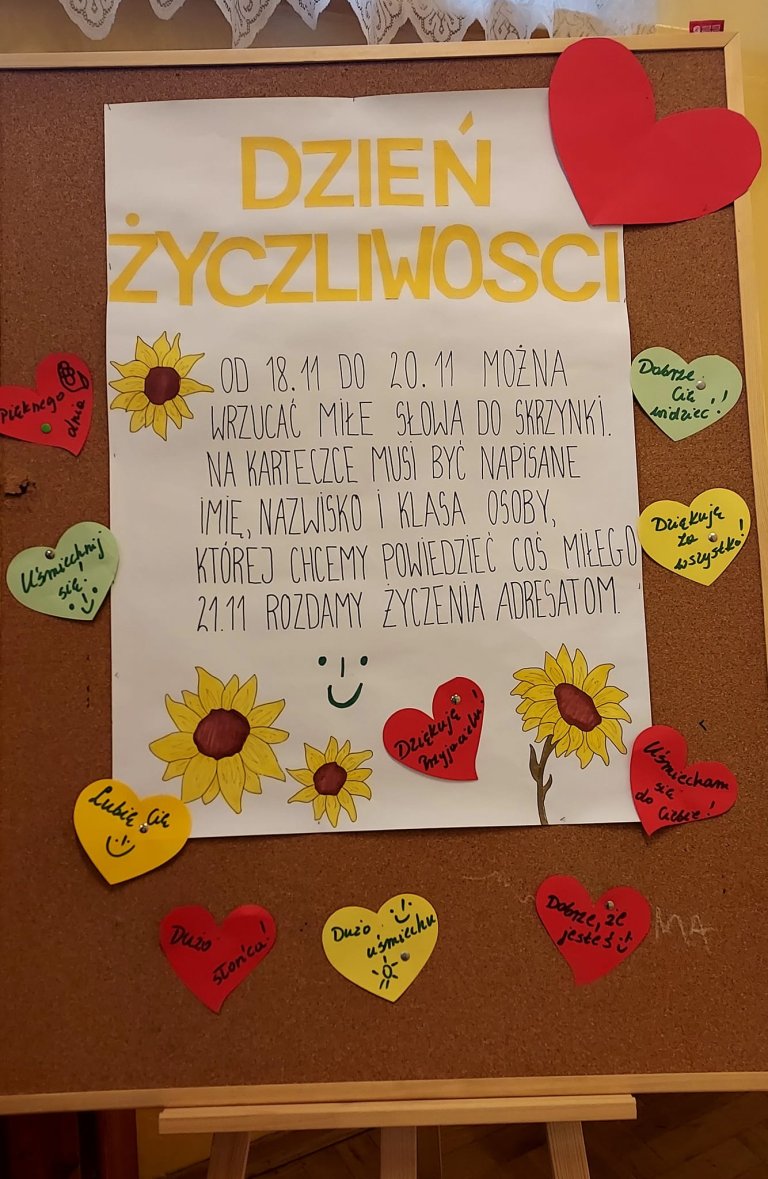 DZIEŃ
ŻYCZLIWOSCI
OD 18.11 DO 20.11 MOŻNA
WRZUCAĆ MIŁE SŁOWA DO SKRZYNKI.
NA KARTECZCE MUSI BYĆ NAPISANE
IMIĘ, NAZWISKO I KLASA OSOBY,
KTÓREJ CHCEMY POWIEDZIEĆ COŚ MIŁEGO
21.11 ROZDAMY ŻYCZENIA ADRESATOM.
Pięknego
dnia
Dobrze
Cię
widzieć!
Uśmiechnij
się!
Dziękuję
za
wszystko!
Dziękuję
Przyjacielu!
Uśmiecham
się
do Ciebie!
Lubię Cię
Dużo
słońca!
Dużo
uśmiechu
Dobrze, że
jesteś!
MA